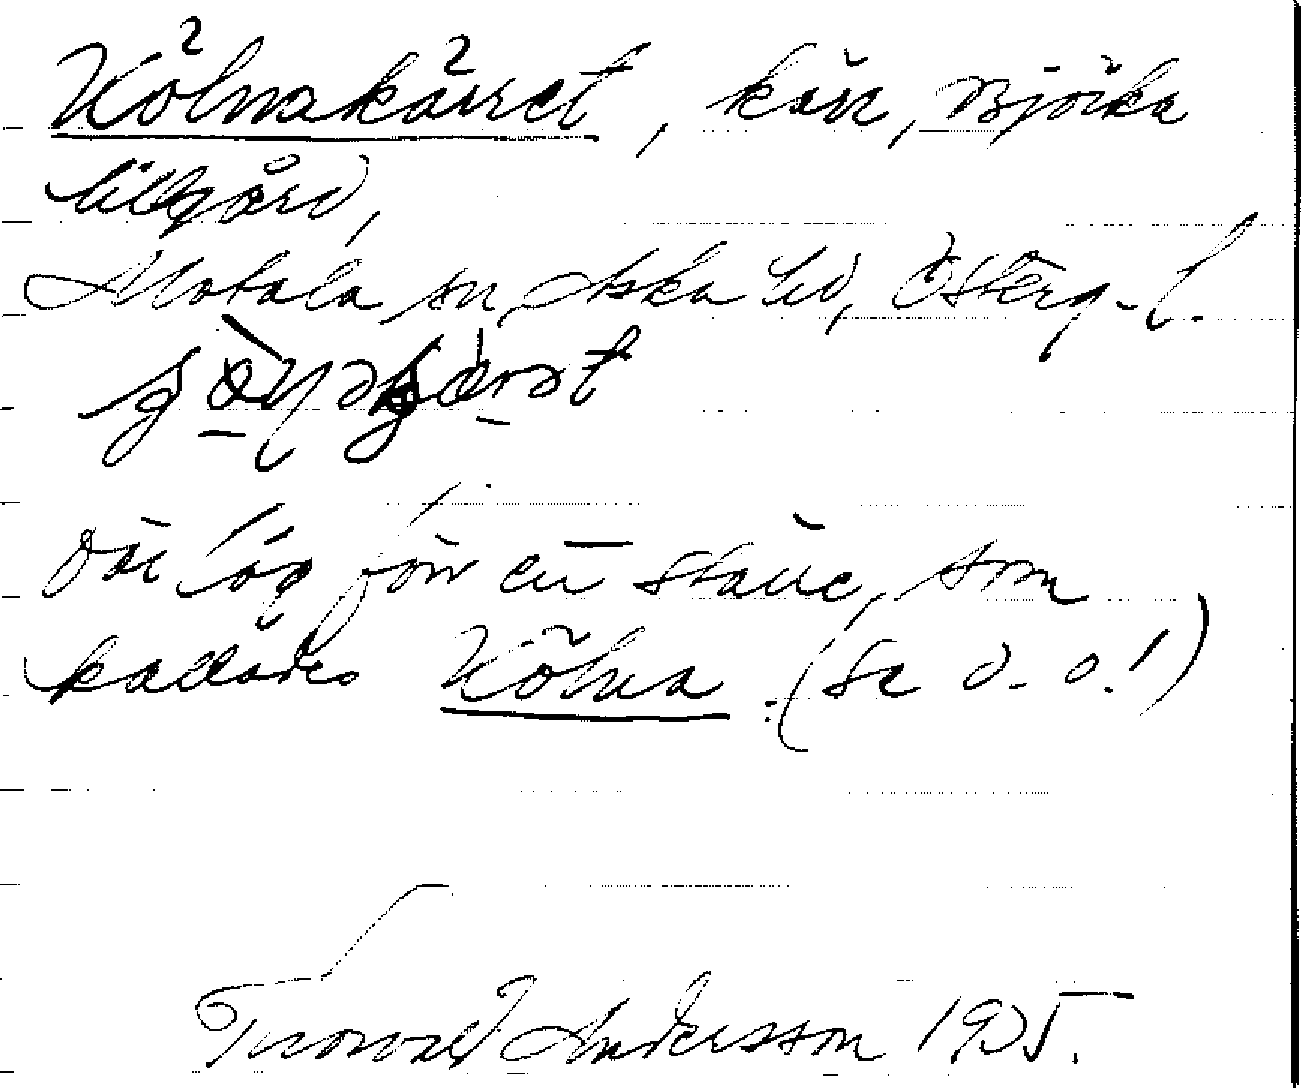 Kölnakärret, kärr, Björka
lillgård,
Motala sn, Aska hd, Österg. l.
Där låg förr en stuga, som
kallades Kölna. (Se d. o.!)
Thorvald Andersson 1925.